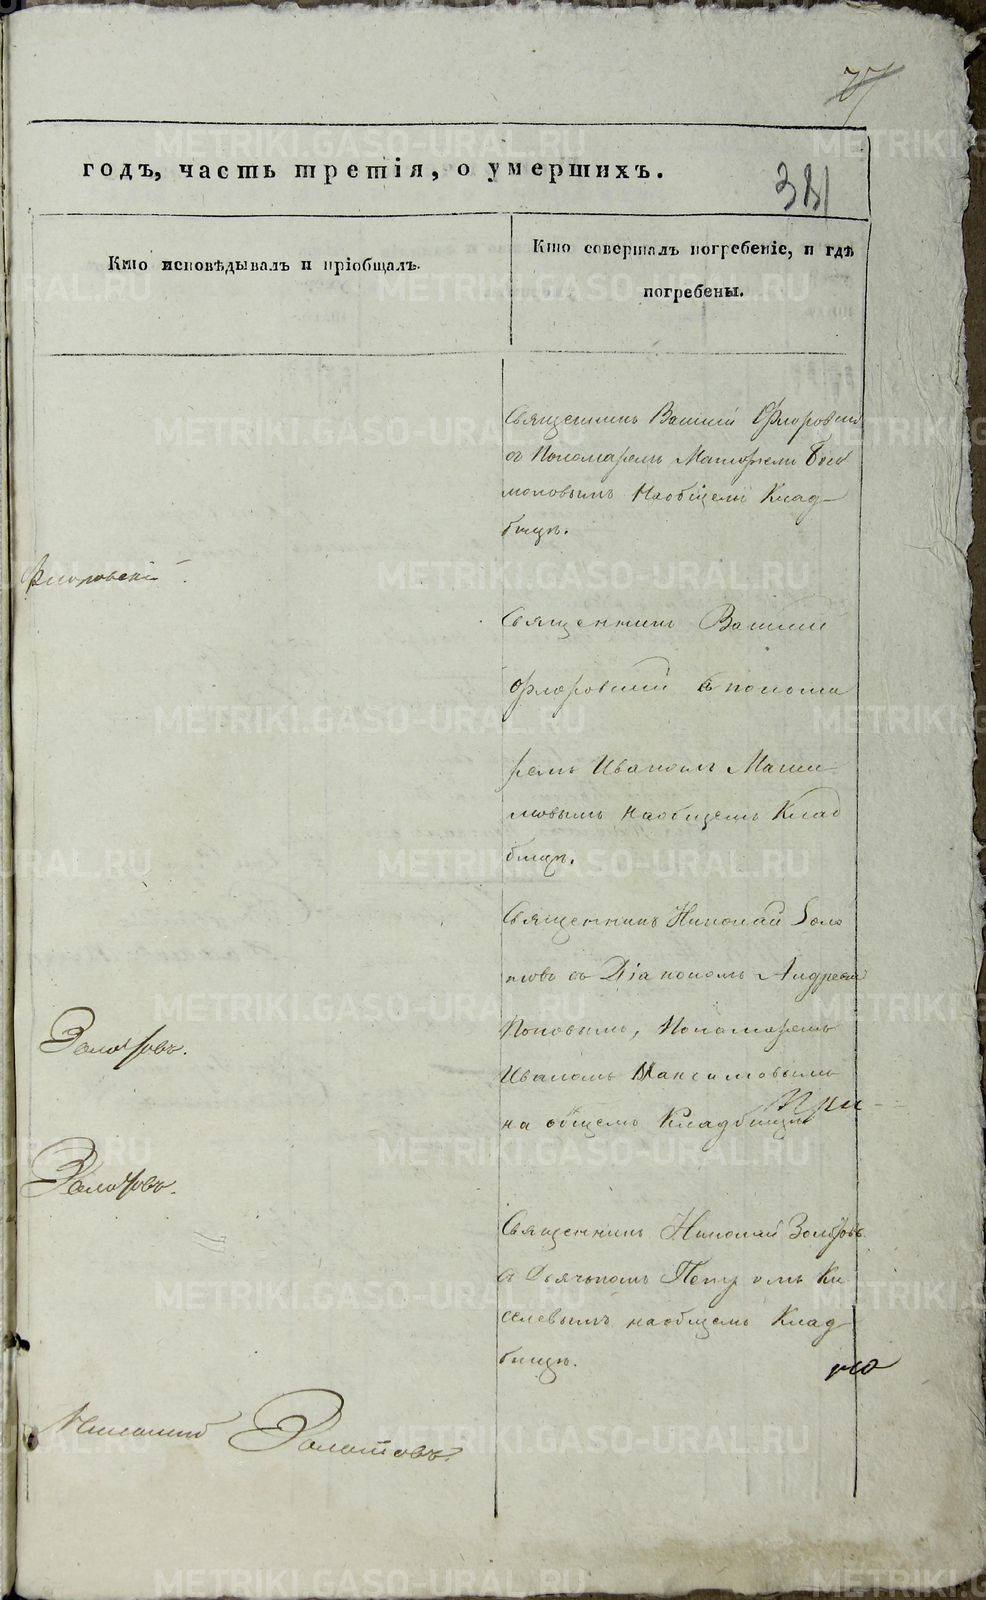 77
годъ, часть третія, о умершихъ.
381
Кто исповѣдывалъ и пріобщалъ.
Кто совершалъ погребеніе, и гдѣ
погребены.
Священникъ Василій Флоровскій
съ Пономаремъ
на общемъ Клад-
бищѣ.
Флоровскій
Священникъ Василій
Флоровскій съ понома
ремъ Иваномъ Макси
мовымъ на общемъ Клад
бищѣ.
Священникъ Николай Золо
товъ съ Діакономъ Андреемъ
Поповымъ, Пономаремъ
Иваномъ Максимовымъ
на общемъ Кладбищѣ
При-
Золотовъ.
Золотовъ.
Священникъ Николай Золотовъ
съ Дьячькомъ Петромъ Ки
селевымъ на общемъ Клад
бищѣ.
Николай Золотовъ.
METRIKI.GASO-URAL.RU